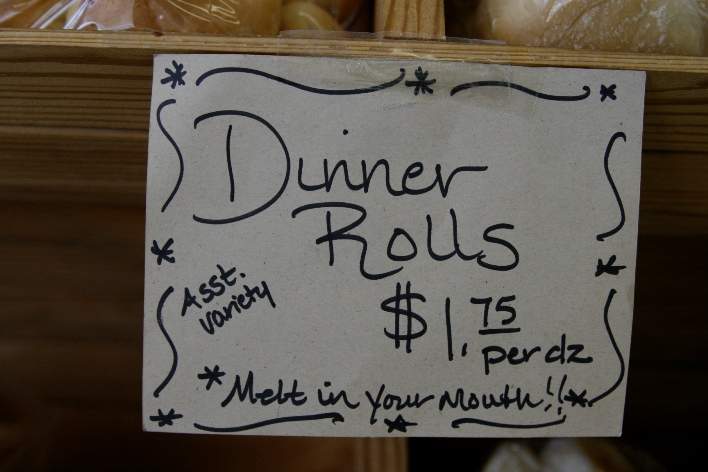 Dinner
Rolls
Asst.
variety
$1.75
per dz
*Melt in your mouth!!*